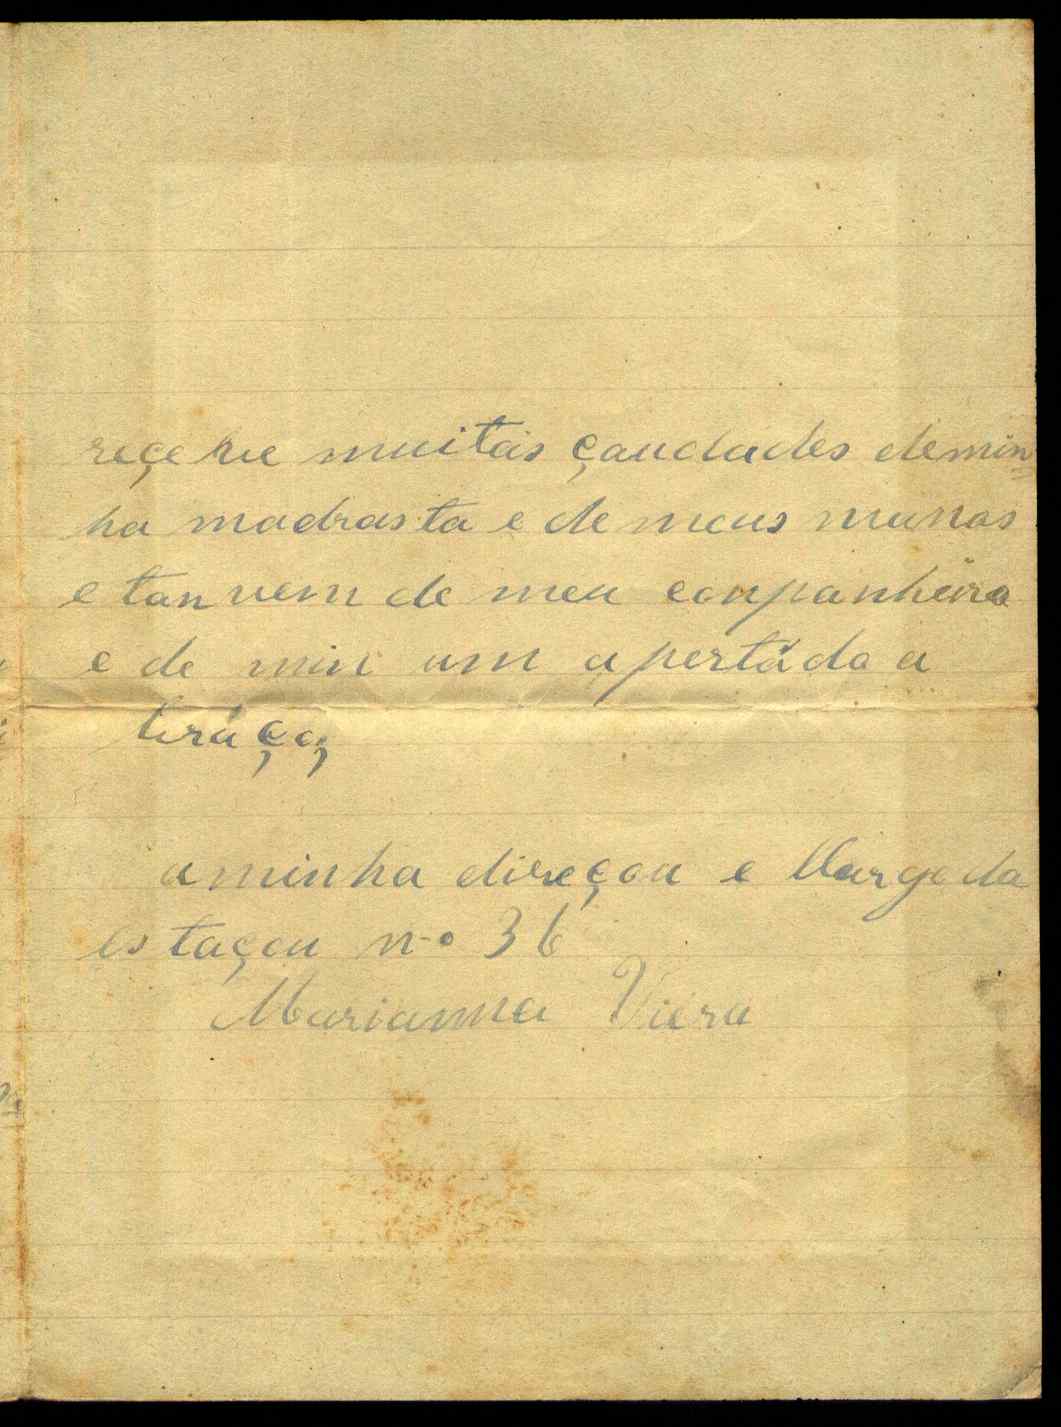 reçeve muitas çaudades demin
ha madrasta e de meus munos
e tan vem de meu conpanheiro
e de min um apertádo a
bráço;
aminha direçou e Largo da
estaçou n.o 36
Marianna Viera